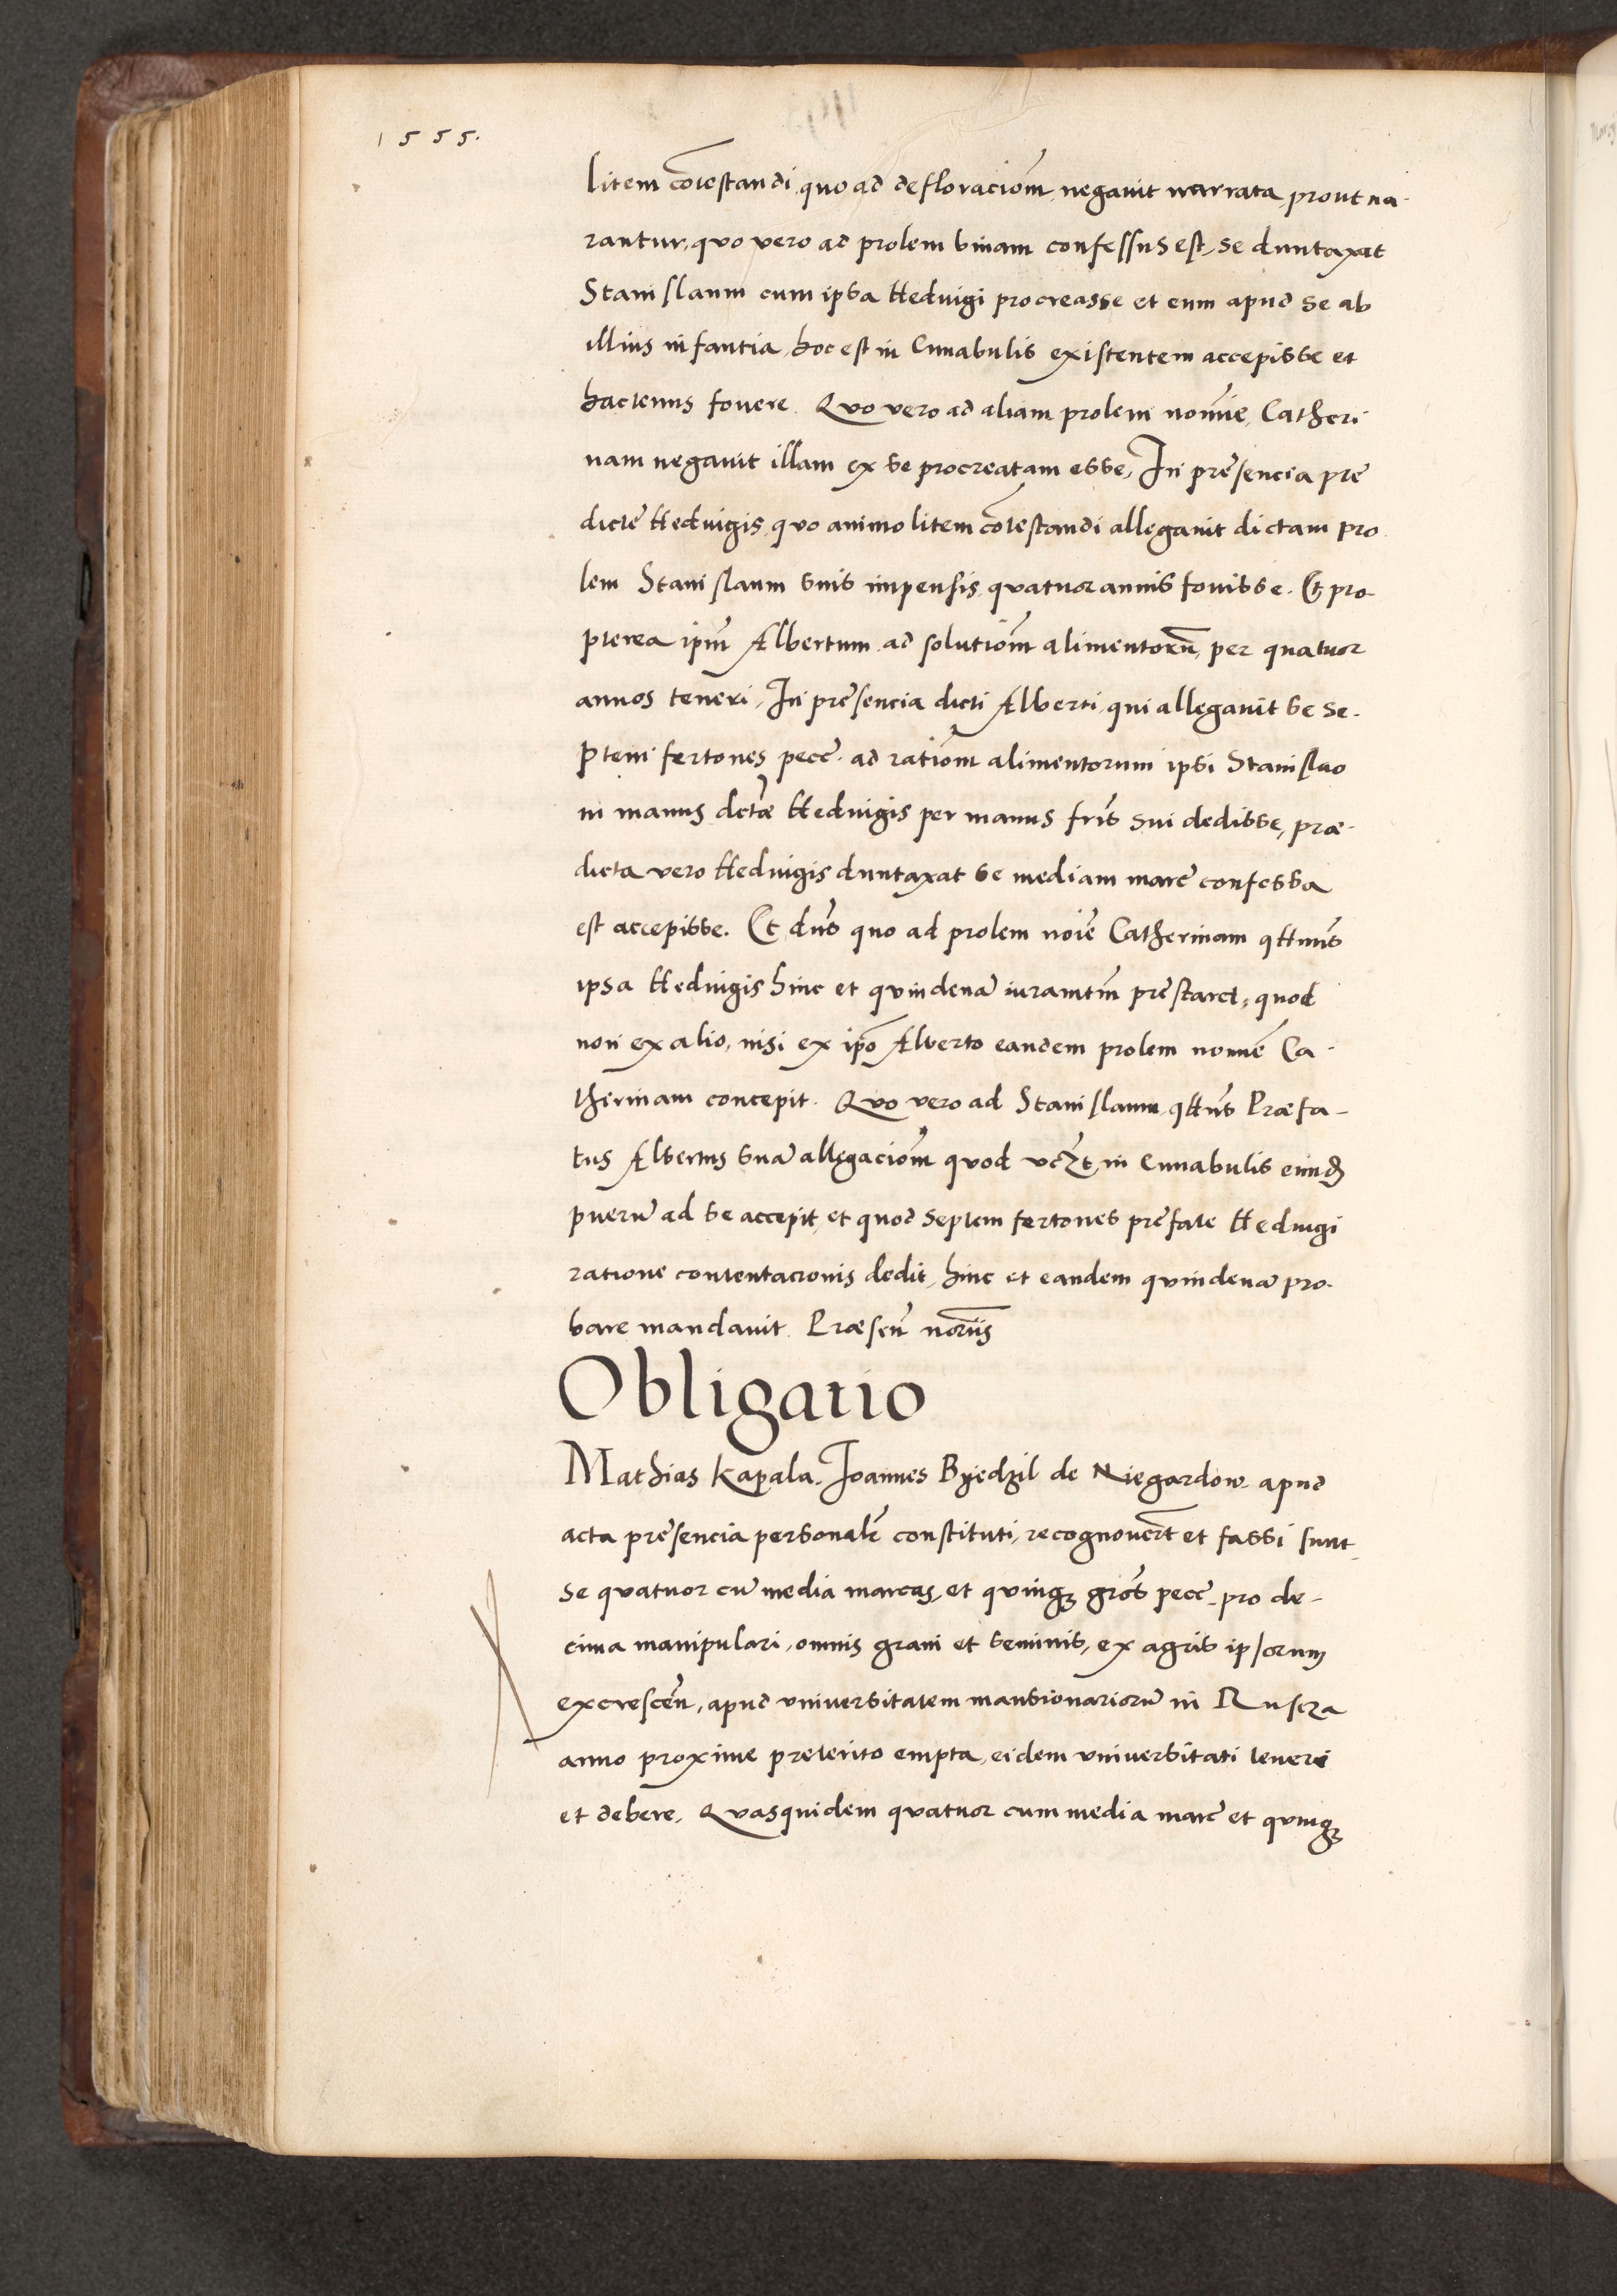 1555.
litem cōtestandi, quo ad defloraciom̄, negauit narrata, prout na-
rantur, quo vero ad prolem binam confessus est, se duntaxat
Stanislaum cum ipsa Hedvigi procreasse et eum apud se ab
illius infantia, hoc est in Cunabulis existentem accepisse et
hactenus fouere. Quo vero ad aliam prolem nomīe, Catheri
nam negauit illam ex se procreatam esse, In pręsencia prę
dictę Hedvigis, quo animo litem cōtestandi allegauit dictam pro
lem Stanislaum suis impensis, quatuor annis fouisse. Et pro-
pterea ipm̄ Albertum ad solutiom̄ alimentorū, per quatuor
annos teneri, In pręsencia dicti Alberti, qui allegauit se se-
ptem fertones pecē. ad ratiom̄ alimentorum ipsi Stanislao
in manus dctæ Hedvigis per manus frīs sui dedisse, præ-
dicta vero Hedvigis duntaxat se mediam marc̄ confessa
est accepisse. Et dn̄s quo ad prolem noīe Catherinam qttn̄s
ipsa Hedvigis hinc et quindenā iuramtm̄ pręstaret, quod
non ex alio, nisi ex ipō Alberto eandem prolem nomīe Ca-
therinam concepit. Quo vero ad Stanislaum, qttn̄s Præfa-
tus Albertus suā allegaciom̄ quod vcꝫt, in Cunabulis eund
puerū ad se accepit, et quod septem fertones pręfate Hedvigi
ratione contentacionis dedit, hinc et eandem quindenā pro-
bare mandauit. Præsen̄ notriis
Obligatio
Mathias Kapala. Joannes Byedzil de Niegardow. apud
acta pręsencia personalr̄ constituti, recognouert̄ et fassi sunt
se quatuor cū media marcas, et quinqꝫ gros̄ pecē pro de-
cima manipulari, omnis grani et seminis, ex agris ipsorum
excrescen̄, apud vniuersitatem mansionariorū in Ruscza
anno proxime preterito empta, eidem vniuersitati teneri
et debere. Quasquidem quatuor cum media marc̄ et quinqꝫ